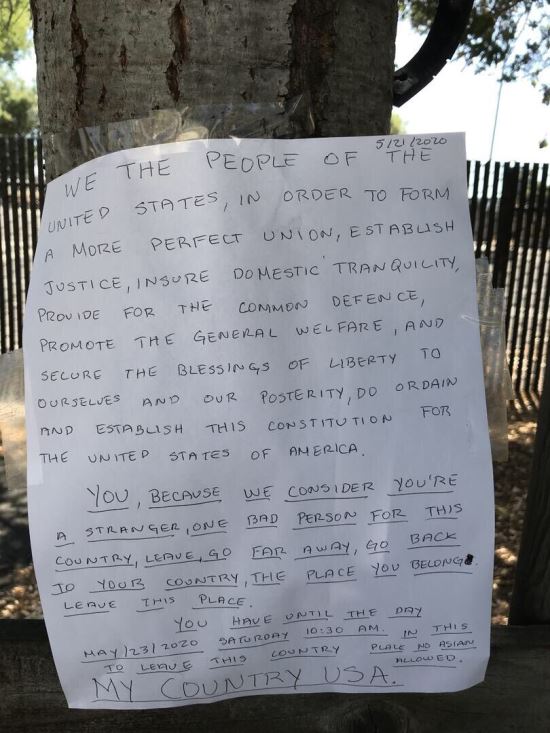 5/21/2020
WE THE PEOPLE OF THE
UNITED STATES, IN ORDER TO FORM
A MORE PERFECT UNION, ESTABLISH
JUSTICE, INSURE DOMESTIC TRANQUILITY,
PROVIDE FOR THE COMMON DEFENCE,
PROMOTE THE GENERAL WELFARE, AND
SECURE THE BLESSINGS OF LIBERTY TO
OURSELVES AND OUR POSTERITY, DO ORDAIN
AND ESTABLISH THIS CONSTITUTION FOR
THE UNITED STATES OF AMERICA.
YOU, BECAUSE WE CONSIDER YOU'RE
A STRANGER, ONE BAD PERSON FOR THIS
COUNTRY, LEAVE, GO FAR AWAY, GO BACK
TO YOUR COUNTRY, THE PLACE YOU BELONG.
LEAVE THIS PLACE.
YOU HAVE UNTIL THE DAY
MAY/23/2020 SATURDAY 10:30 AM. IN THIS
TO LEAVE THIS COUNTRY PLALE NO ASIAN
ALLOWED.
MY COUNTRY USA.